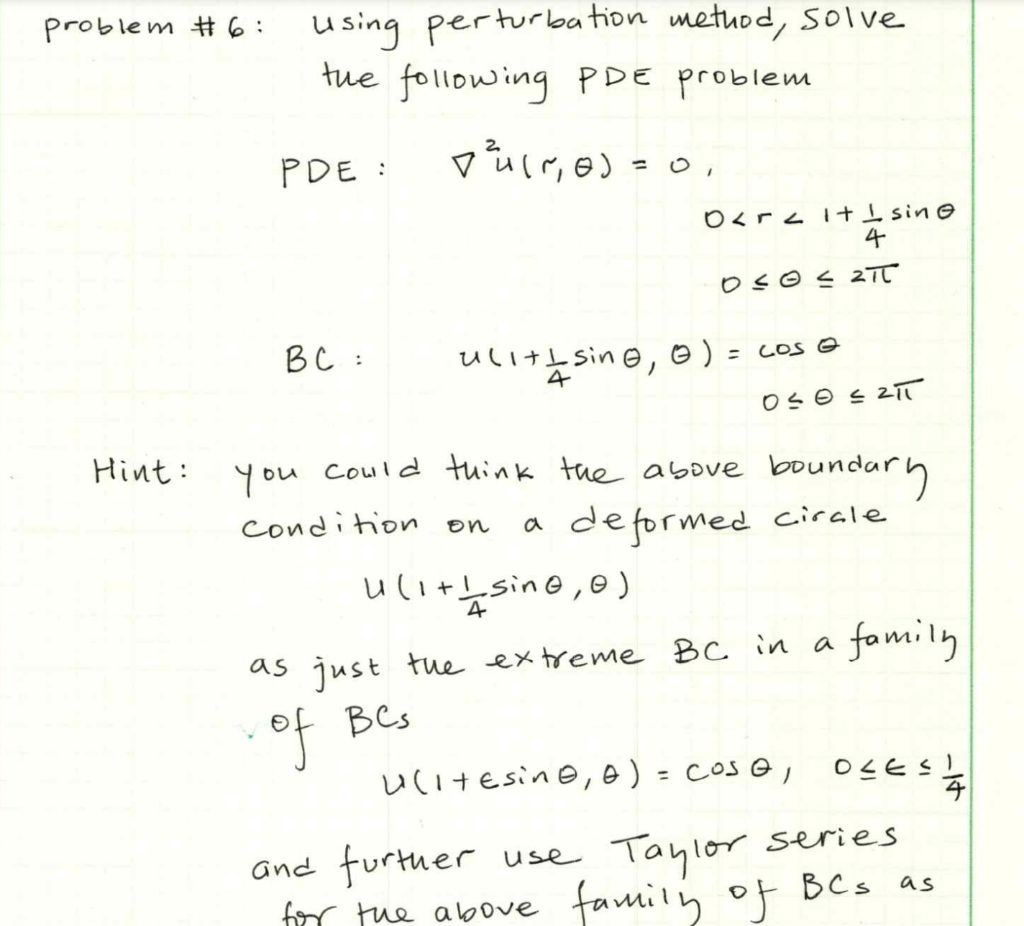 Problem # 6: Using perturbation method, solve
the following PDE problem
PDE : ∇²u(r, θ) = 0,
0 < r < 1 + 1/4 sin θ
0 ≤ θ ≤ 2π
BC : u(1 + 1/4 sin θ, θ) = cos θ
0 ≤ θ ≤ 2π
Hint: you could think the above boundary
condition on a deformed circle
u(1 + 1/4 sin θ, θ)
as just the extreme BC in a family
of BCs
u(1 + ϵ sin θ, θ) = cos θ, 0 ≤ ϵ ≤ 1/4
and further use Taylor series
for the above family of BCs as